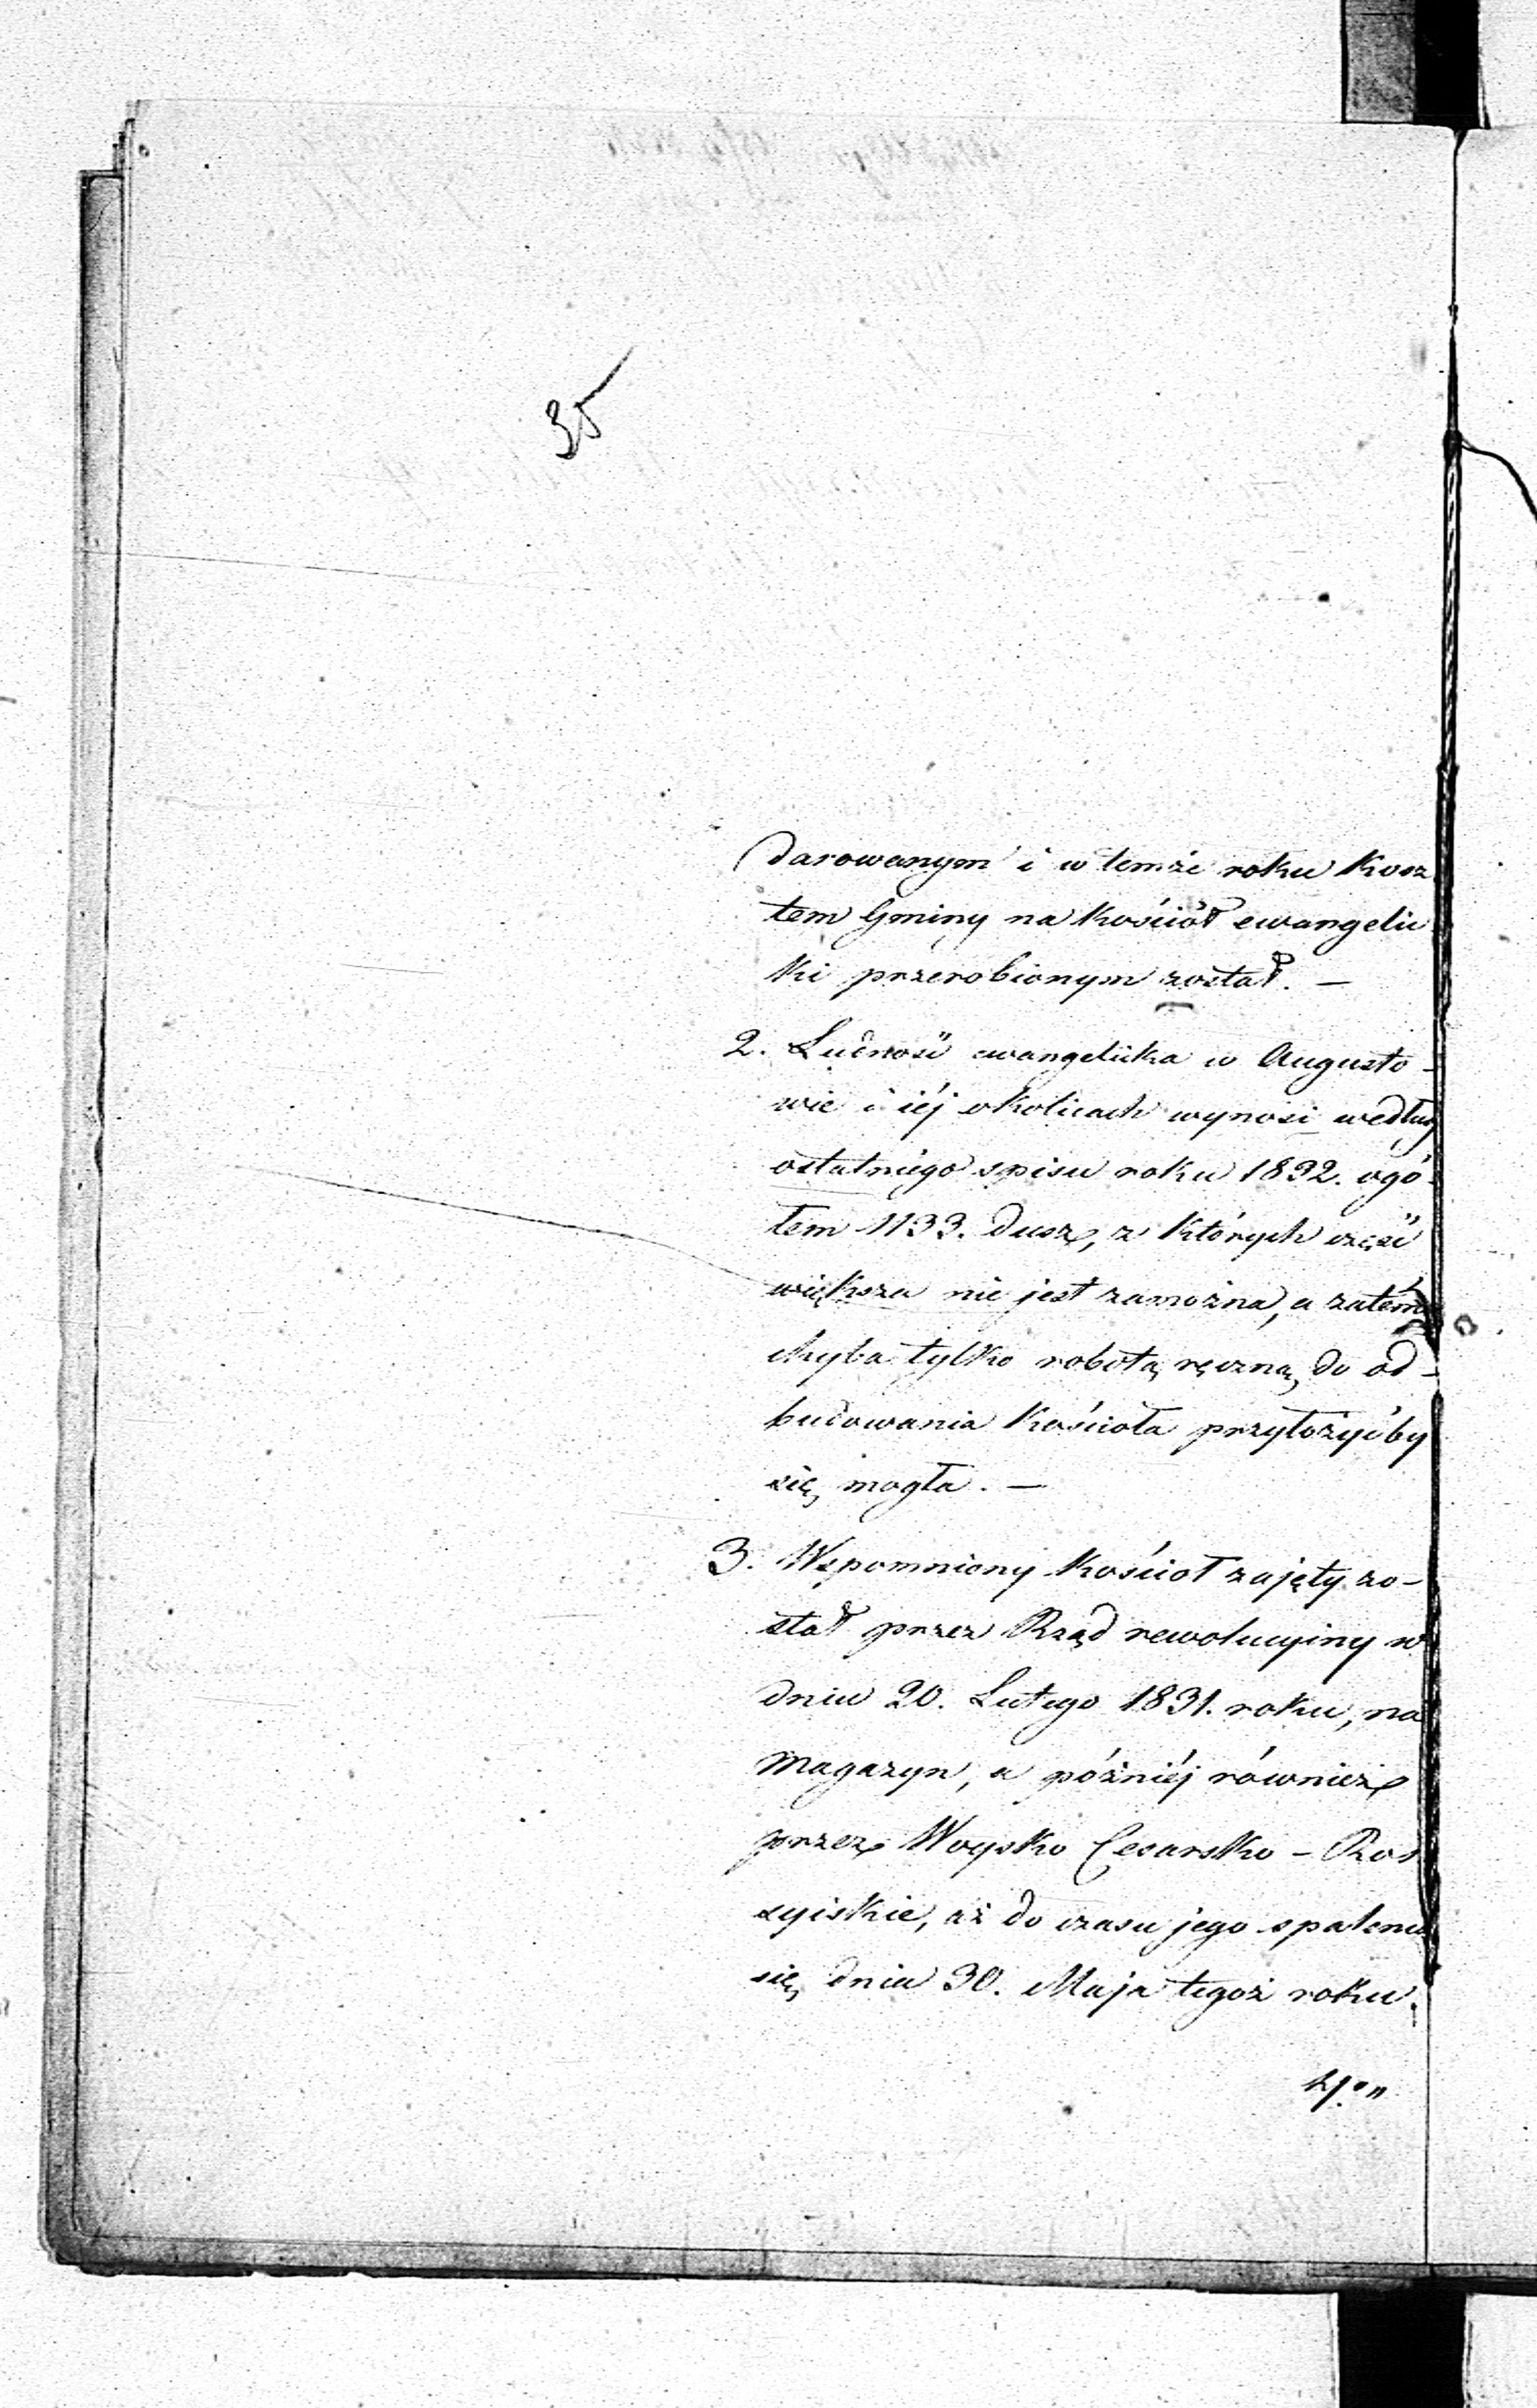 35
darowanym i w temże roku kosz
tem Gminy na kościół ewangelic
ki przerobionym został. —
2. Ludność ewangelicka w Augusto-
wie i iéj okolicach wynosi według
ostatniego spisu roku 1832. ogó-
łem 1133. dusz, z których część
większa nie jest zamożna, a zatém
chyba tylko robotą ręczną do od-
budowania kościoła przyłożyćby
się mogła. —
3. Wspomniony kościoł zajęty zo-
stał przez Rząd rewolucyiny w
dniu 20. Lutego 1831. roku, na
magazyn, a późniéj również
przez Woysko Cesarsko-Ros
syiskie, aż do czasu jego spalenia
się dnia 30. Maja tegoż roku.